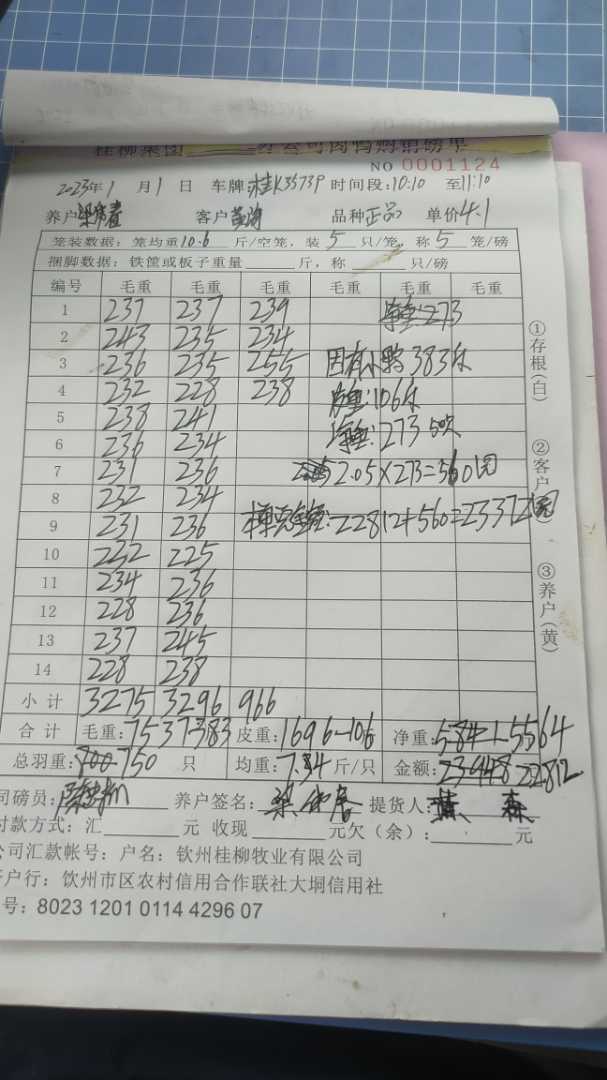 桂柳集团 分公司肉鸭购销磅单
NO 0001124
2023年1月1日 车牌:桂K3373P 时间段:10:10 至11:10
养户 客户 品种正品 单价4.1
笼装数据:笼均重10.6斤/空笼,装5只/笼,称5笼/磅
捆脚数据:铁筐或板子重量 斤,称 只/磅
编号 毛重 毛重 毛重 毛重 毛重 毛重
1 237 237 239 净重:273
2 243 235 234
3 236 235 255 因有小鸭383斤
4 232 228 238 皮重:106斤
5 238 241 净重:273
6 236 234
7 231 236 2.05×273=560(元)
8 232 234
9 231 236 22812+560=23372(元)
10 222 225
11 234 236
12 228 236
13 237 245
14 228 238
小计 3275 3296 966
合计 毛重:7537-383 皮重:1696-106 净重:5841-5564
总羽重:800 750 只 均重:7.34斤/只 金额:23948 22812
司磅员: 养户签名: 提货人:
付款方式:汇 元 收现 元欠(余): 元
公司汇款帐号:户名:钦州桂柳牧业有限公司
开户行:饮州市区农村信用合作联社大垌信用社
号:8023 1201 0114 4296 07
①存根(白)
②客户
③养户(黄)